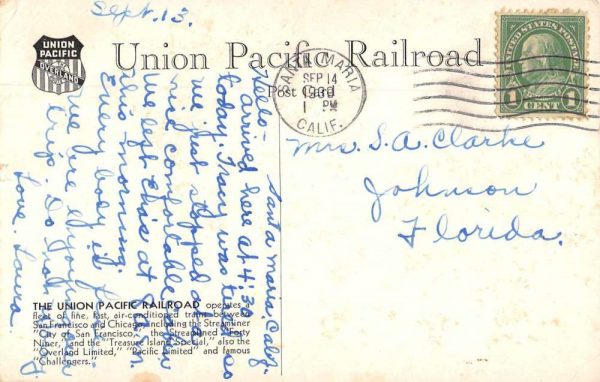 Sept. 13.
UNION
PACIFIC
OVERLAND
Union Pacific Railroad
Post Card
SANTA MARIA
SEP 14
1 PM
CALIF.
UNITED STATES POSTAGE
1 1
CENT
Mrs. S. A. Clarke
Johnson
Florida.
Santa Maria, Calif.
Hello:-
arrived here at 4:3
today. Tracy was tired so
we just stopped at a
and comfortable
We left at
this morning.
Every body is
We are enjoying
trip. Do not
Love. Laura.
THE UNION PACIFIC RAILROAD operates a
fleet of fine, fast, air-conditioned trains between
San Francisco and Chicago, including the Streamliner
"City of San Francisco," the Streamlined Forty
Niner, and the "Treasure Island Special," also the
"Overland Limited," "Pacific Limited" and famous
"Challengers."